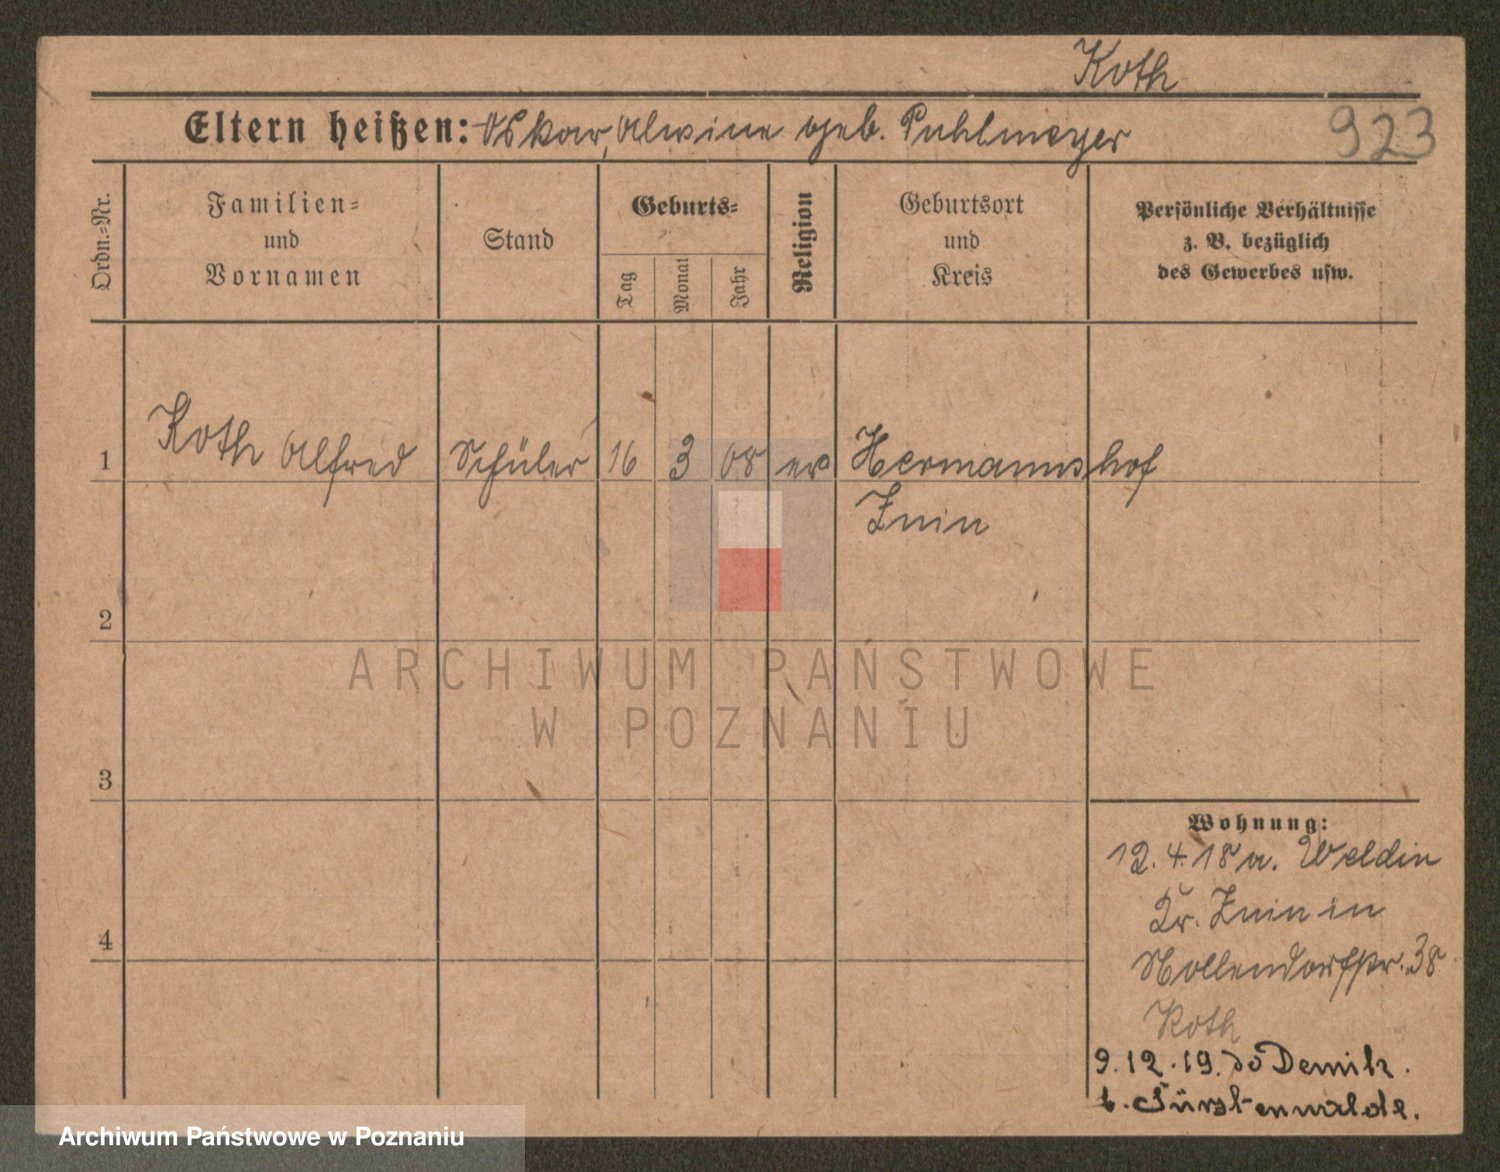 Koth
Eltern heißen: Oskar, Alwine geb. Puhlmeyer
923
Ordn.-Nr.
Familien-
und
Vornamen
Stand
Geburts-
Tag
Monat
Jahr
Religion
Geburtsort
und
Kreis
Persönliche Verhältnisse
z. B. bezüglich
des Gewerbes usw.
1 Koth Alfred Schüler 16 3 08 ev Hermannshof
Znin
2
3
4
ARCHIWUM PAŃSTWOWE
W POZNANIU
Wohnung:
12.4.18 a. Weldin
Kr. Znin in
Nollendorfstr. 38
Koth
9.12.19. Demitz.
b. Fürstenwalde.
Archiwum Państwowe w Poznaniu